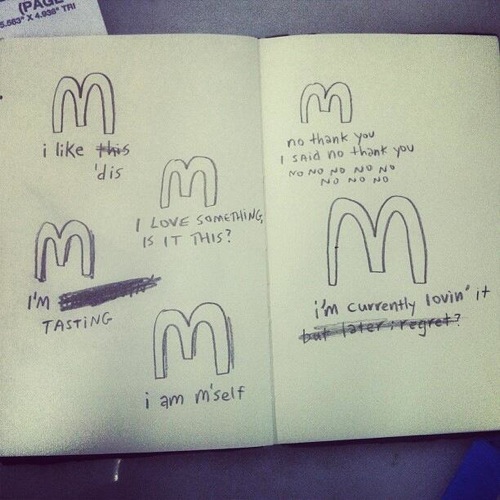 (PAGE
5.563" X 4.938" TRI
M
i like this
'dis
M
I LOVE SOMETHING,
IS IT THIS?
M
I'M
TASTING
M
i am m'self
M
no thank you
I SAID no thank you
NO NO NO NO NO
NO NO NO
M
i'm currently lovin' it
but later: regret?